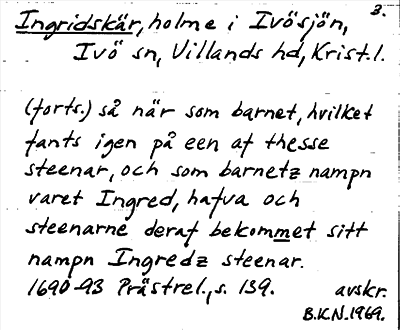 3.
Ingridskär, holme i Ivösjön,
Ivö sn, Villands hd, Krist.l.
(forts.) så när som barnet, hvilket
fants igen på een af thesse
steenar, och som barnetz nampn
varet Ingred, hafva och
steenarne deraf bekommet sitt
nampn Ingredz steenar.
1690-93 Prästrel., s. 139. avskr.
B.K.N. 1969.